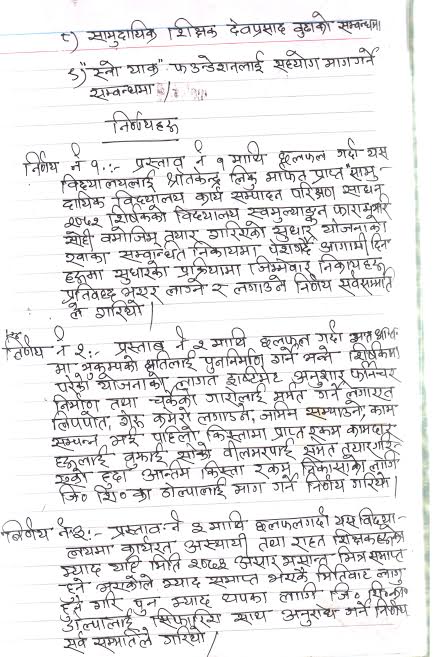 ८) सामुदायिक शिक्षक देवप्रसाद बुढाको सम्बन्धमा
९) "स्नो याक" फाउन्डेशनलाई सहयोग माग गर्ने
सम्बन्धमा ।
निर्णयहरू
निर्णय नं १:- प्रस्ताव नं १ माथि छलफल गर्दा यस
विद्यालयलाई श्रोतकेन्द्र लिकु मार्फत प्राप्त "सामु
दायिक विद्यालय कार्य सम्पादन परिक्षण साधन
२०७२ शिर्षकको विद्यालय स्वमुल्याङ्कन फारामभरि
सोही बमोजिम तयार गरिएको सुधार योजनाको
सम्वन्धित निकायमा पेशगर्दै आगामी दिन
हरूमा सुधारको प्रक्रियामा जिम्मेवार निकायहरू
प्रतिवद्ध भएर लाग्ने र लगाउने निर्णय सर्वसम्मति
ले गरियो ।
निर्णय नं २:- प्रस्ताव नं २ माथि छलफल गर्दा
मा भुकम्पको क्षतिलाई पुननिर्माण गर्ने भन्ने शिर्षकमा
परेको योजनाको लागत इष्टिमेट अनुशार फर्निचर
निर्माण तथा चर्केको गारोलाई मर्मत गर्ने लगायत
लिपपोत, गेरु कमेरो लगाउने, जमिन सम्याउने काम
सम्पन्न भई पहिलो किस्तामा प्राप्त रकम कामदार
हरूलाई बुझाई सोको वीलभरपाई समेत तयारगरि
हुदा अन्तिम किस्ता रकम निकासाको लागि
जि० शि० का डोल्पालाई माग गर्ने निर्णय गरियो ।
निर्णय नं ३:- प्रस्ताव नं ३ माथि छलफलगर्दा यस विद्या-
लयमा कार्यरत अस्थायी तथा राहत शिक्षकहरूको
म्याद यहि मिति २०७३ असार मसान्त भित्र समाप्त
हुने भएकोले म्याद समाप्त भएकै मितिबाट लागु
हुने गरि पुन म्याद थपका लागि जि० शि० का०
डोल्पालाई सिफारिस साथ अनुरोध गर्ने निर्णय
सर्व सम्मतिले गरियो ।